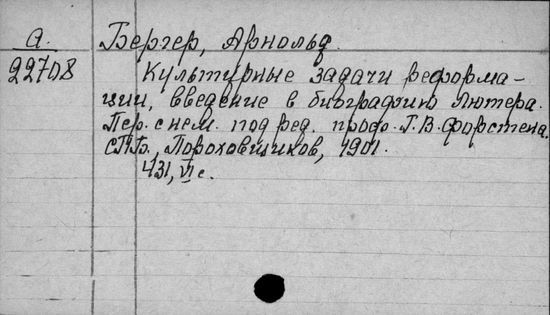 А. Бергер, Арнольд.
22708 Культурные задачи реформа-
ции, введение в биографию Лютера.
Пер. с нем. под ред. проф. Г. В. Форстена.
СПБ., Пороховщиков, 1901.
431, VI с.